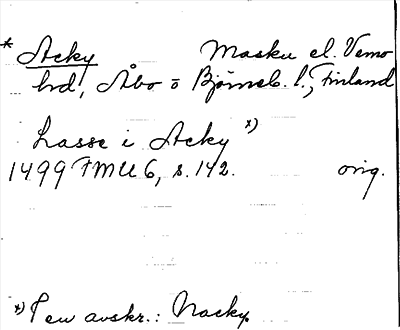 * Acky Masku el. Vemo
hd, Åbo o Björneb. l., Finland
Lasse i Acky *)
1499 FMU 6, s. 142. orig.
*) I en avskr.: Nacky.